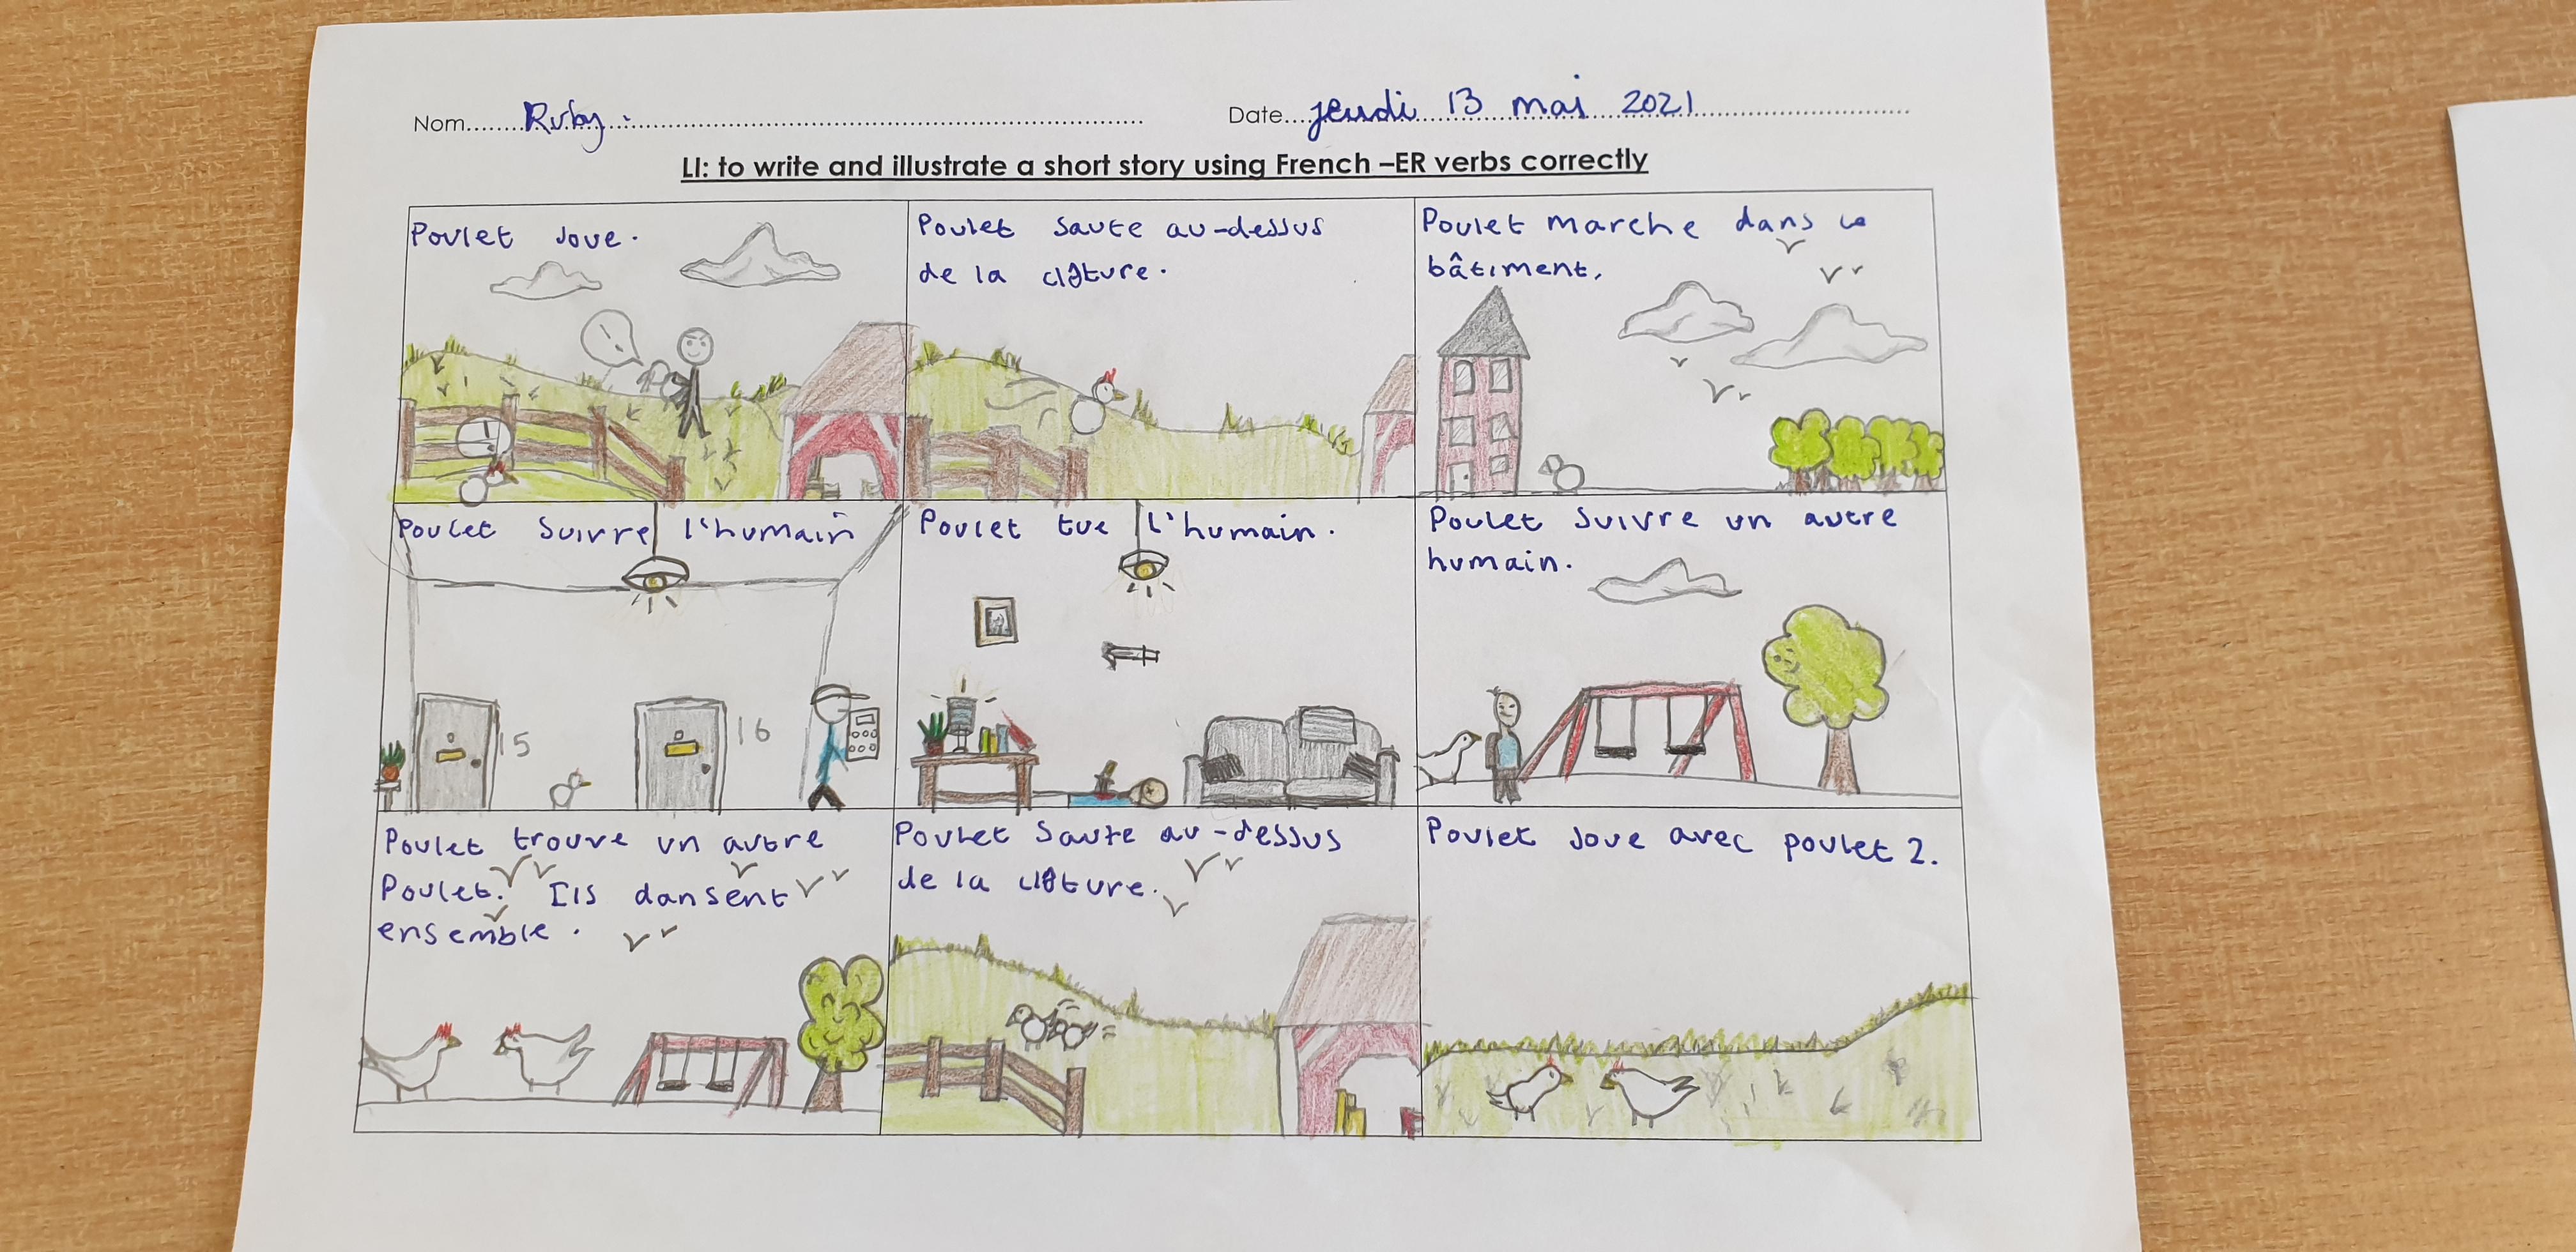 Nom Ruby. Date jeudi 13 mai 2021
LI: to write and illustrate a short story using French –ER verbs correctly
Poulet joue.
!
!
Poulet saute au-dessus
de la clôture.
Poulet marche dans le
bâtiment.
Poulet suivre l'humain
15
16
Poulet tue l'humain.
Poulet suivre un autre
humain.
Poulet trouve un autre
Poulet. Ils dansent
ensemble.
Poulet saute au-dessus
de la clôture.
Poulet joue avec poulet 2.